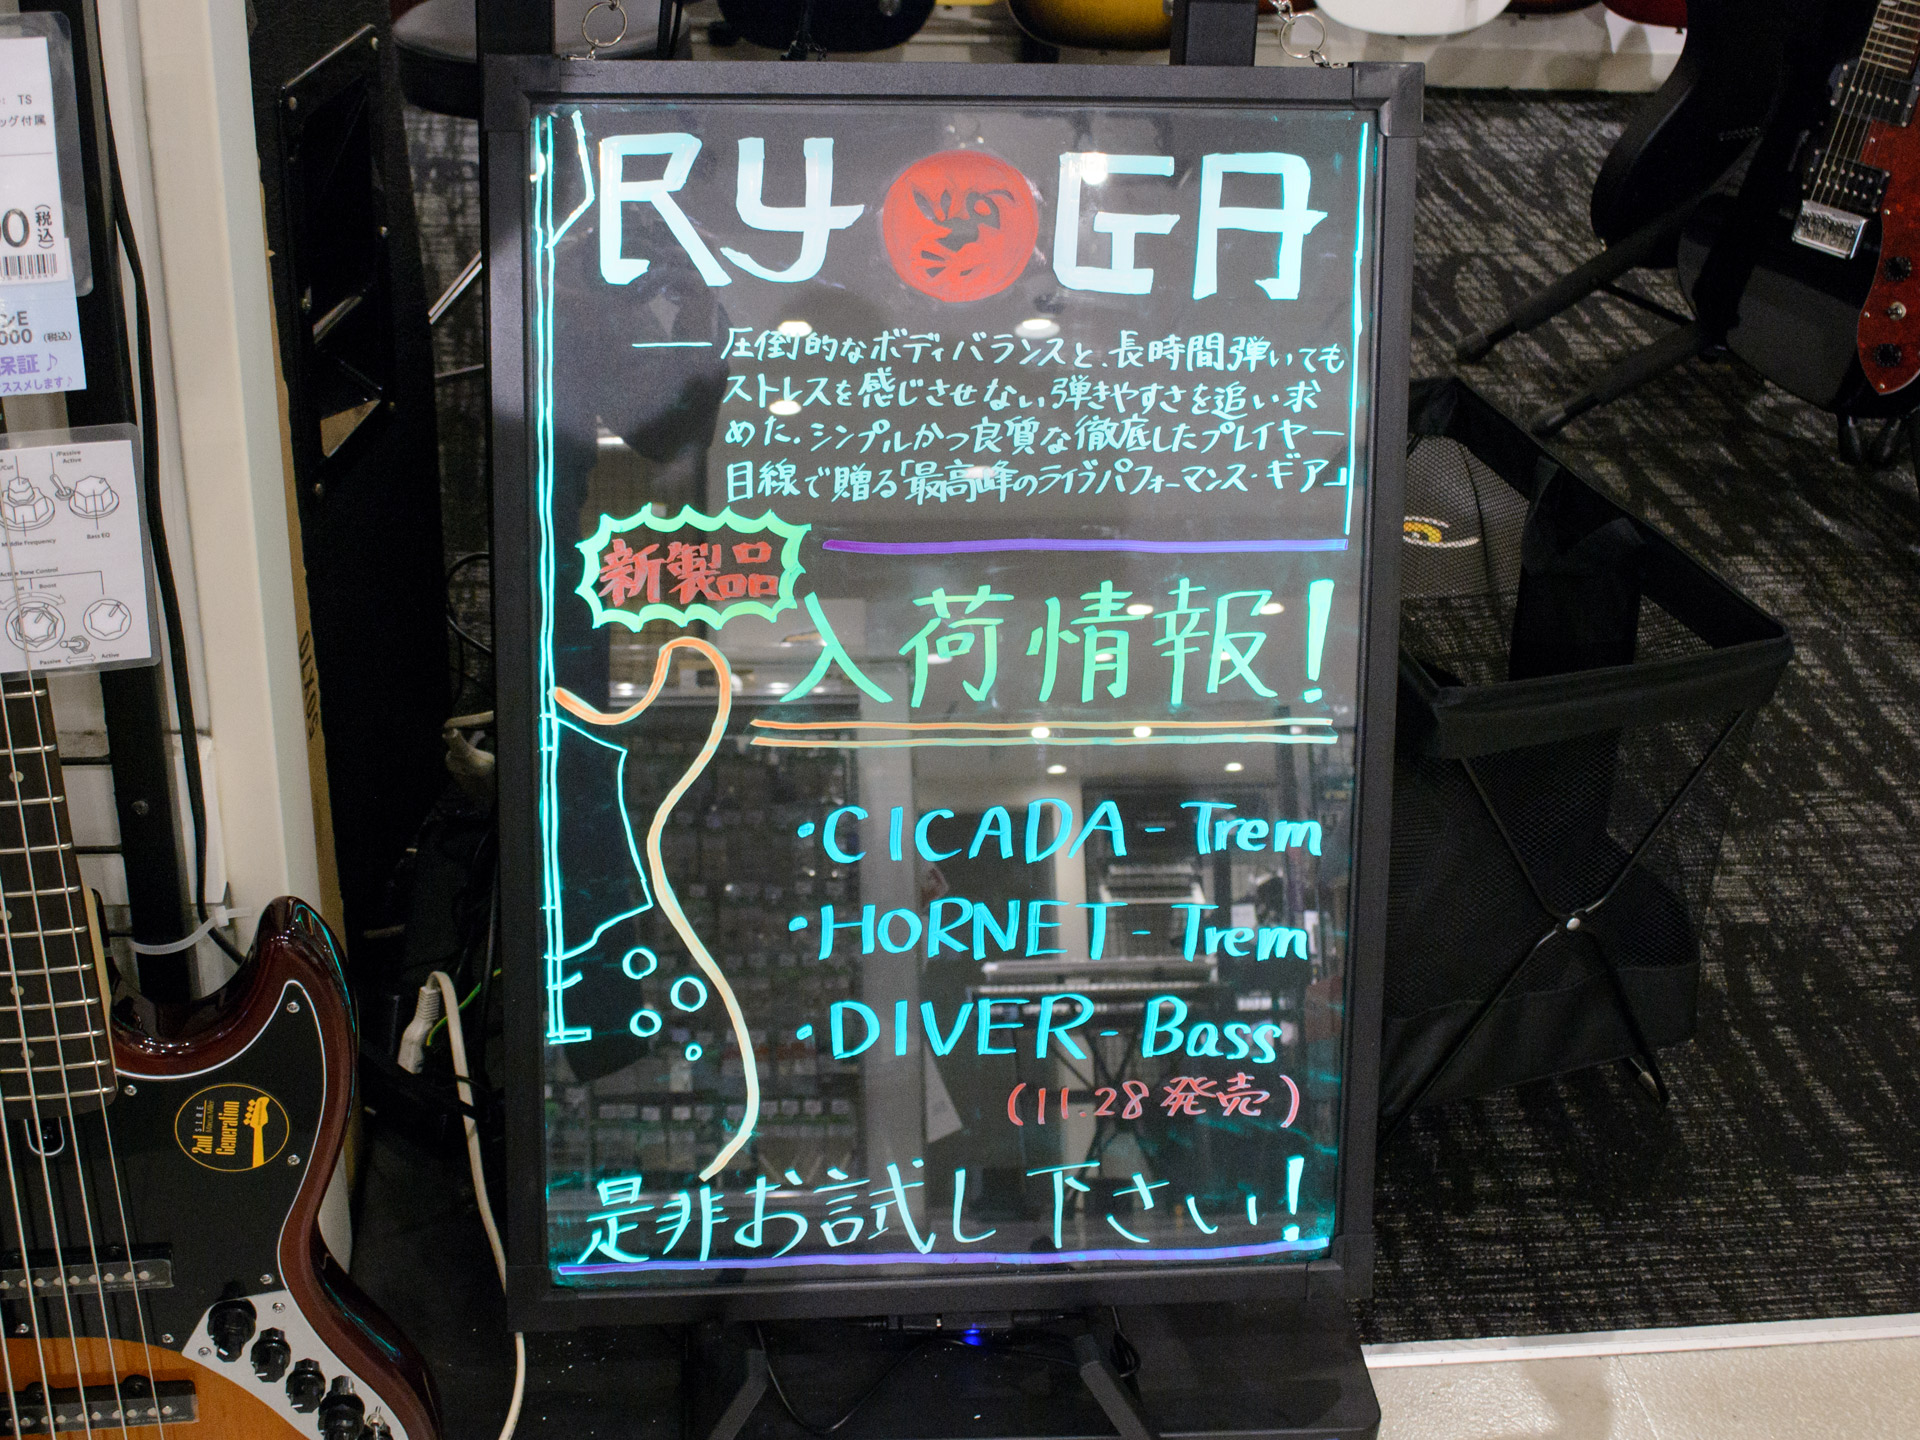 RYOGA
圧倒的なボディバランスと、長時間弾いても
ストレスを感じさせない弾きやすさを追い求
めた。シンプルかつ良質な徹底したプレイヤー
目線で贈る「最高峰のライブパフォーマンス・ギア」
新製品
入荷情報!
・CICADA-Trem
・HORNET-Trem
・DIVER-Bass
(11.28発売)
是非お試し下さい!
TS
ッグ付属
00
(税込)
ンE
000 (税込)
保証♪
ススメします♪
/Passive
Active
Middle Frequency
Bass EQ
Active Tone Control
Boost
Passive
Active
2nd
Generation